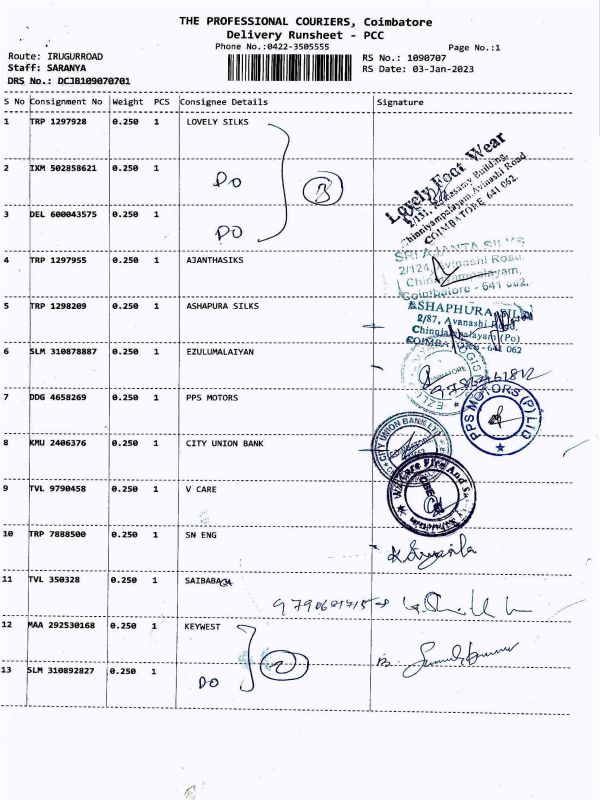 THE PROFESSIONAL COURIERS, Coimbatore
Delivery Runsheet - PCC
Phone No.:0422-3505555
Page No.:1
Route: IRUGURROAD
RS No.: 1090707
Staff: SARANYA
RS Date: 03-Jan-2023
DRS No.: DCJB109070701
S No Consignment No Weight PCS Consignee Details Signature
1 TRP 1297928 0.250 1 LOVELY SILKS
2 IXM 502858621 0.250 1 DO
3 DEL 600043575 0.250 1 DO
3
Lovely Foot Wear
Building,
Chinniyampalayam, Avinashi Road
COIMBATORE 641 062.
4 TRP 1297955 0.250 1 AJANTHASIKS
SRI AJANTA SILKS
2/124, Avinashi Road,
Chinniyampalayam,
Coimbatore - 641 062.
5 TRP 1298209 0.250 1 ASHAPURA SILKS
ASHAPHURA SILK
2/87, Avanashi Road,
Chinniyampalayam (Po)
COIMBATORE - 641 062
6 SLM 310878887 0.250 1 EZULUMALAIYAN
COIMBATORE
7 DDG 4658269 0.250 1 PPS MOTORS
PPS MOTORS (P) LTD
8 KMU 2406376 0.250 1 CITY UNION BANK
CITY UNION BANK LTD
9 TVL 9790458 0.250 1 V CARE
Care Fire And
10 TRP 7888500 0.250 1 SN ENG
11 TVL 350328 0.250 1 SAIBABA
12 MAA 292530168 0.250 1 KEYWEST
13 SLM 310892827 0.250 1 DO
2